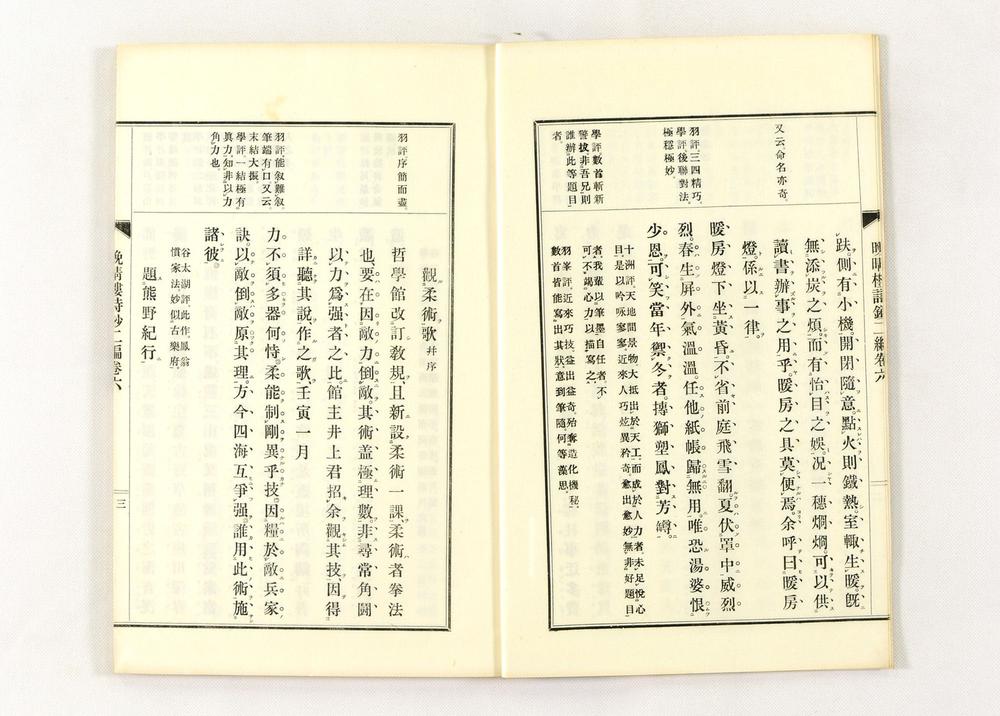 又云、命名亦奇。
羽評、三四精巧、
學評、後聯對法、
極穩極妙。
學評、數首斬新
警拔、非吾兄則
誰辦此等題目
者。
趺側有小機、開閉隨意、點火則鐵熱、室輙生暖、旣
無添炭之煩、而有怡目之娛、况一穗烱烱、可以供
讀書辦事之用乎、暖房之具莫便焉、余呼曰暖房
燈、係以一律。
暖房燈下坐黃昏。不省前庭飛雪翻。夏伏罩中威烈
烈。春生屏外氣溫溫。任他紙帳歸無用。唯恐湯婆恨
少恩。可笑當年禦冬者。摶獅塑鳳對芳罇。
十洲評、天地間景物、大抵出於天工、而成於人力者、未足悅心
目、是以吟咏寥寥、近來人巧炫異矜奇、愈出愈妙、無非好題目
者、我輩以筆墨自任者、不
可不竭心力以描寫之、
羽峯評、近來巧技益出益奇、殆奪造化機秘、
數首皆能寫出其狀、意到筆隨、何等藻思、
羽評、序簡而盡。
羽評、能叙難叙、
筆端有口、又云、
末結大振、
學評、一結極有
眞力、知非以力
角力也、
觀柔術歌 幷序
哲學館改訂敎規、且新設柔術一課、柔術者拳法
也、要在因敵力倒敵、其術盖極理數、非尋常角鬪
以力爲强者之比、館主井上君招余觀其技、因得
詳聽其說、作之歌、壬寅一月
力不須多器何恃。柔能制剛異乎技。因糧於敵兵家
訣。以敵倒敵原其理。方今四海互爭强。誰用此術施
諸彼。
谷太湖評、此作鳳翁
慣家法、妙似古樂府、
題熊野紀行
晩晴樓詩鈔二編卷六
三